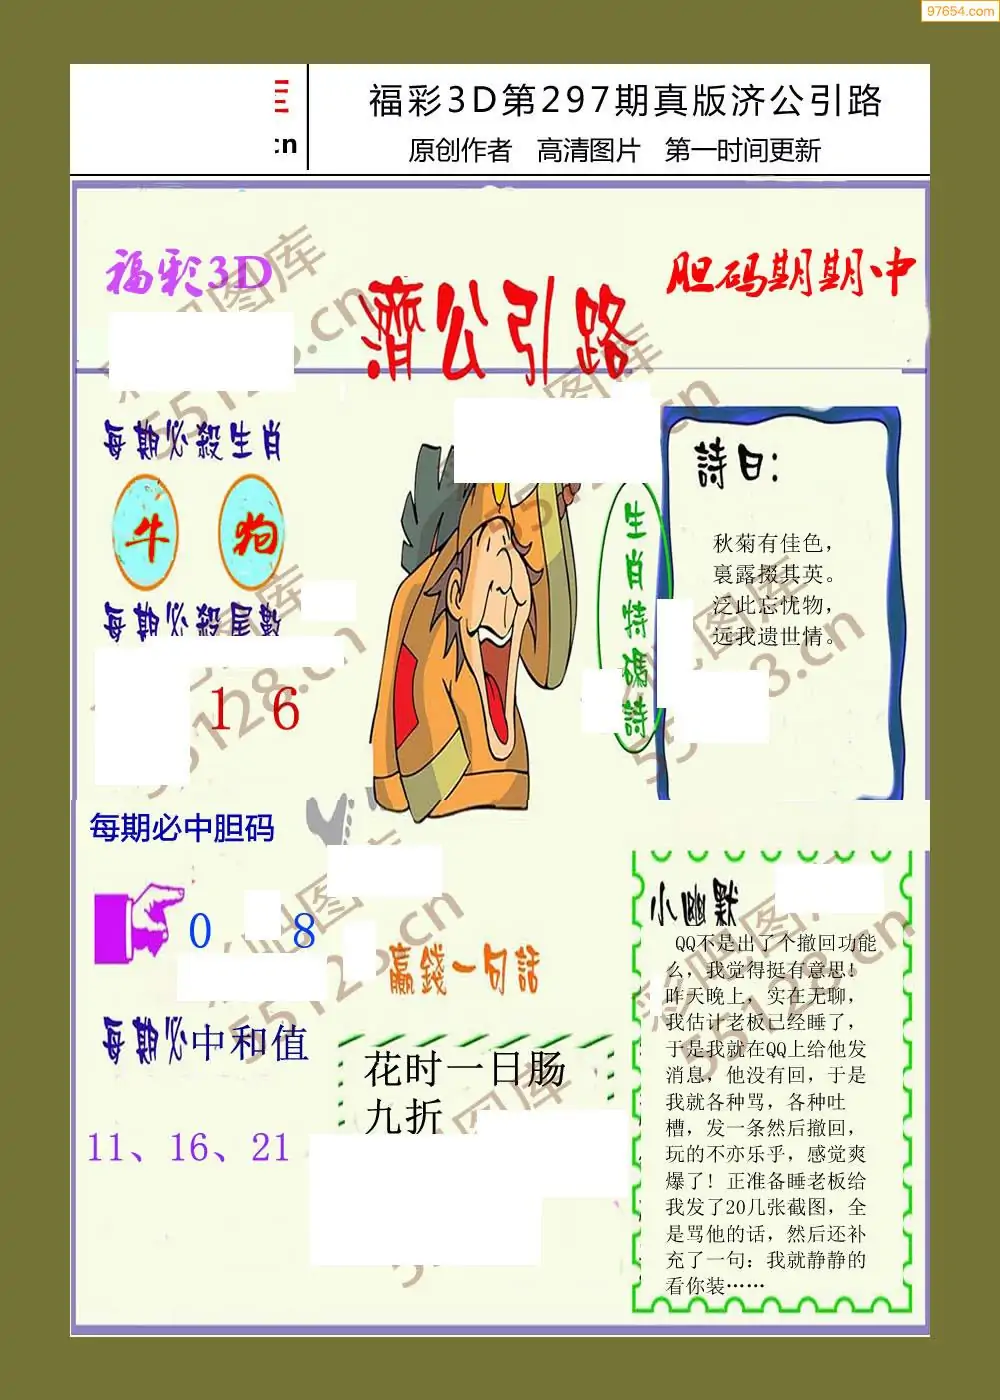 97654.com
:cn
福彩3D第297期真版济公引路
原创作者 高清图片 第一时间更新
福彩3D
濟公引路
胆码期期中
每期必殺生肖
牛 狗
每期必殺尾數
1 6
生肖特碼詩
詩曰：
秋菊有佳色，
裛露掇其英。
泛此忘忧物，
远我遗世情。
每期必中胆码
0 8
每期必中和值
11、16、21
贏錢一句話
花时一日肠
九折
小幽默
QQ不是出了个撤回功能
么，我觉得挺有意思！
昨天晚上，实在无聊，
我估计老板已经睡了，
于是我就在QQ上给他发
消息，他没有回，于是
我就各种骂，各种吐
槽，发一条然后撤回，
玩的不亦乐乎，感觉爽
爆了！正准备睡老板给
我发了20几张截图，全
是骂他的话，然后还补
充了一句：我就静静的
看你装……